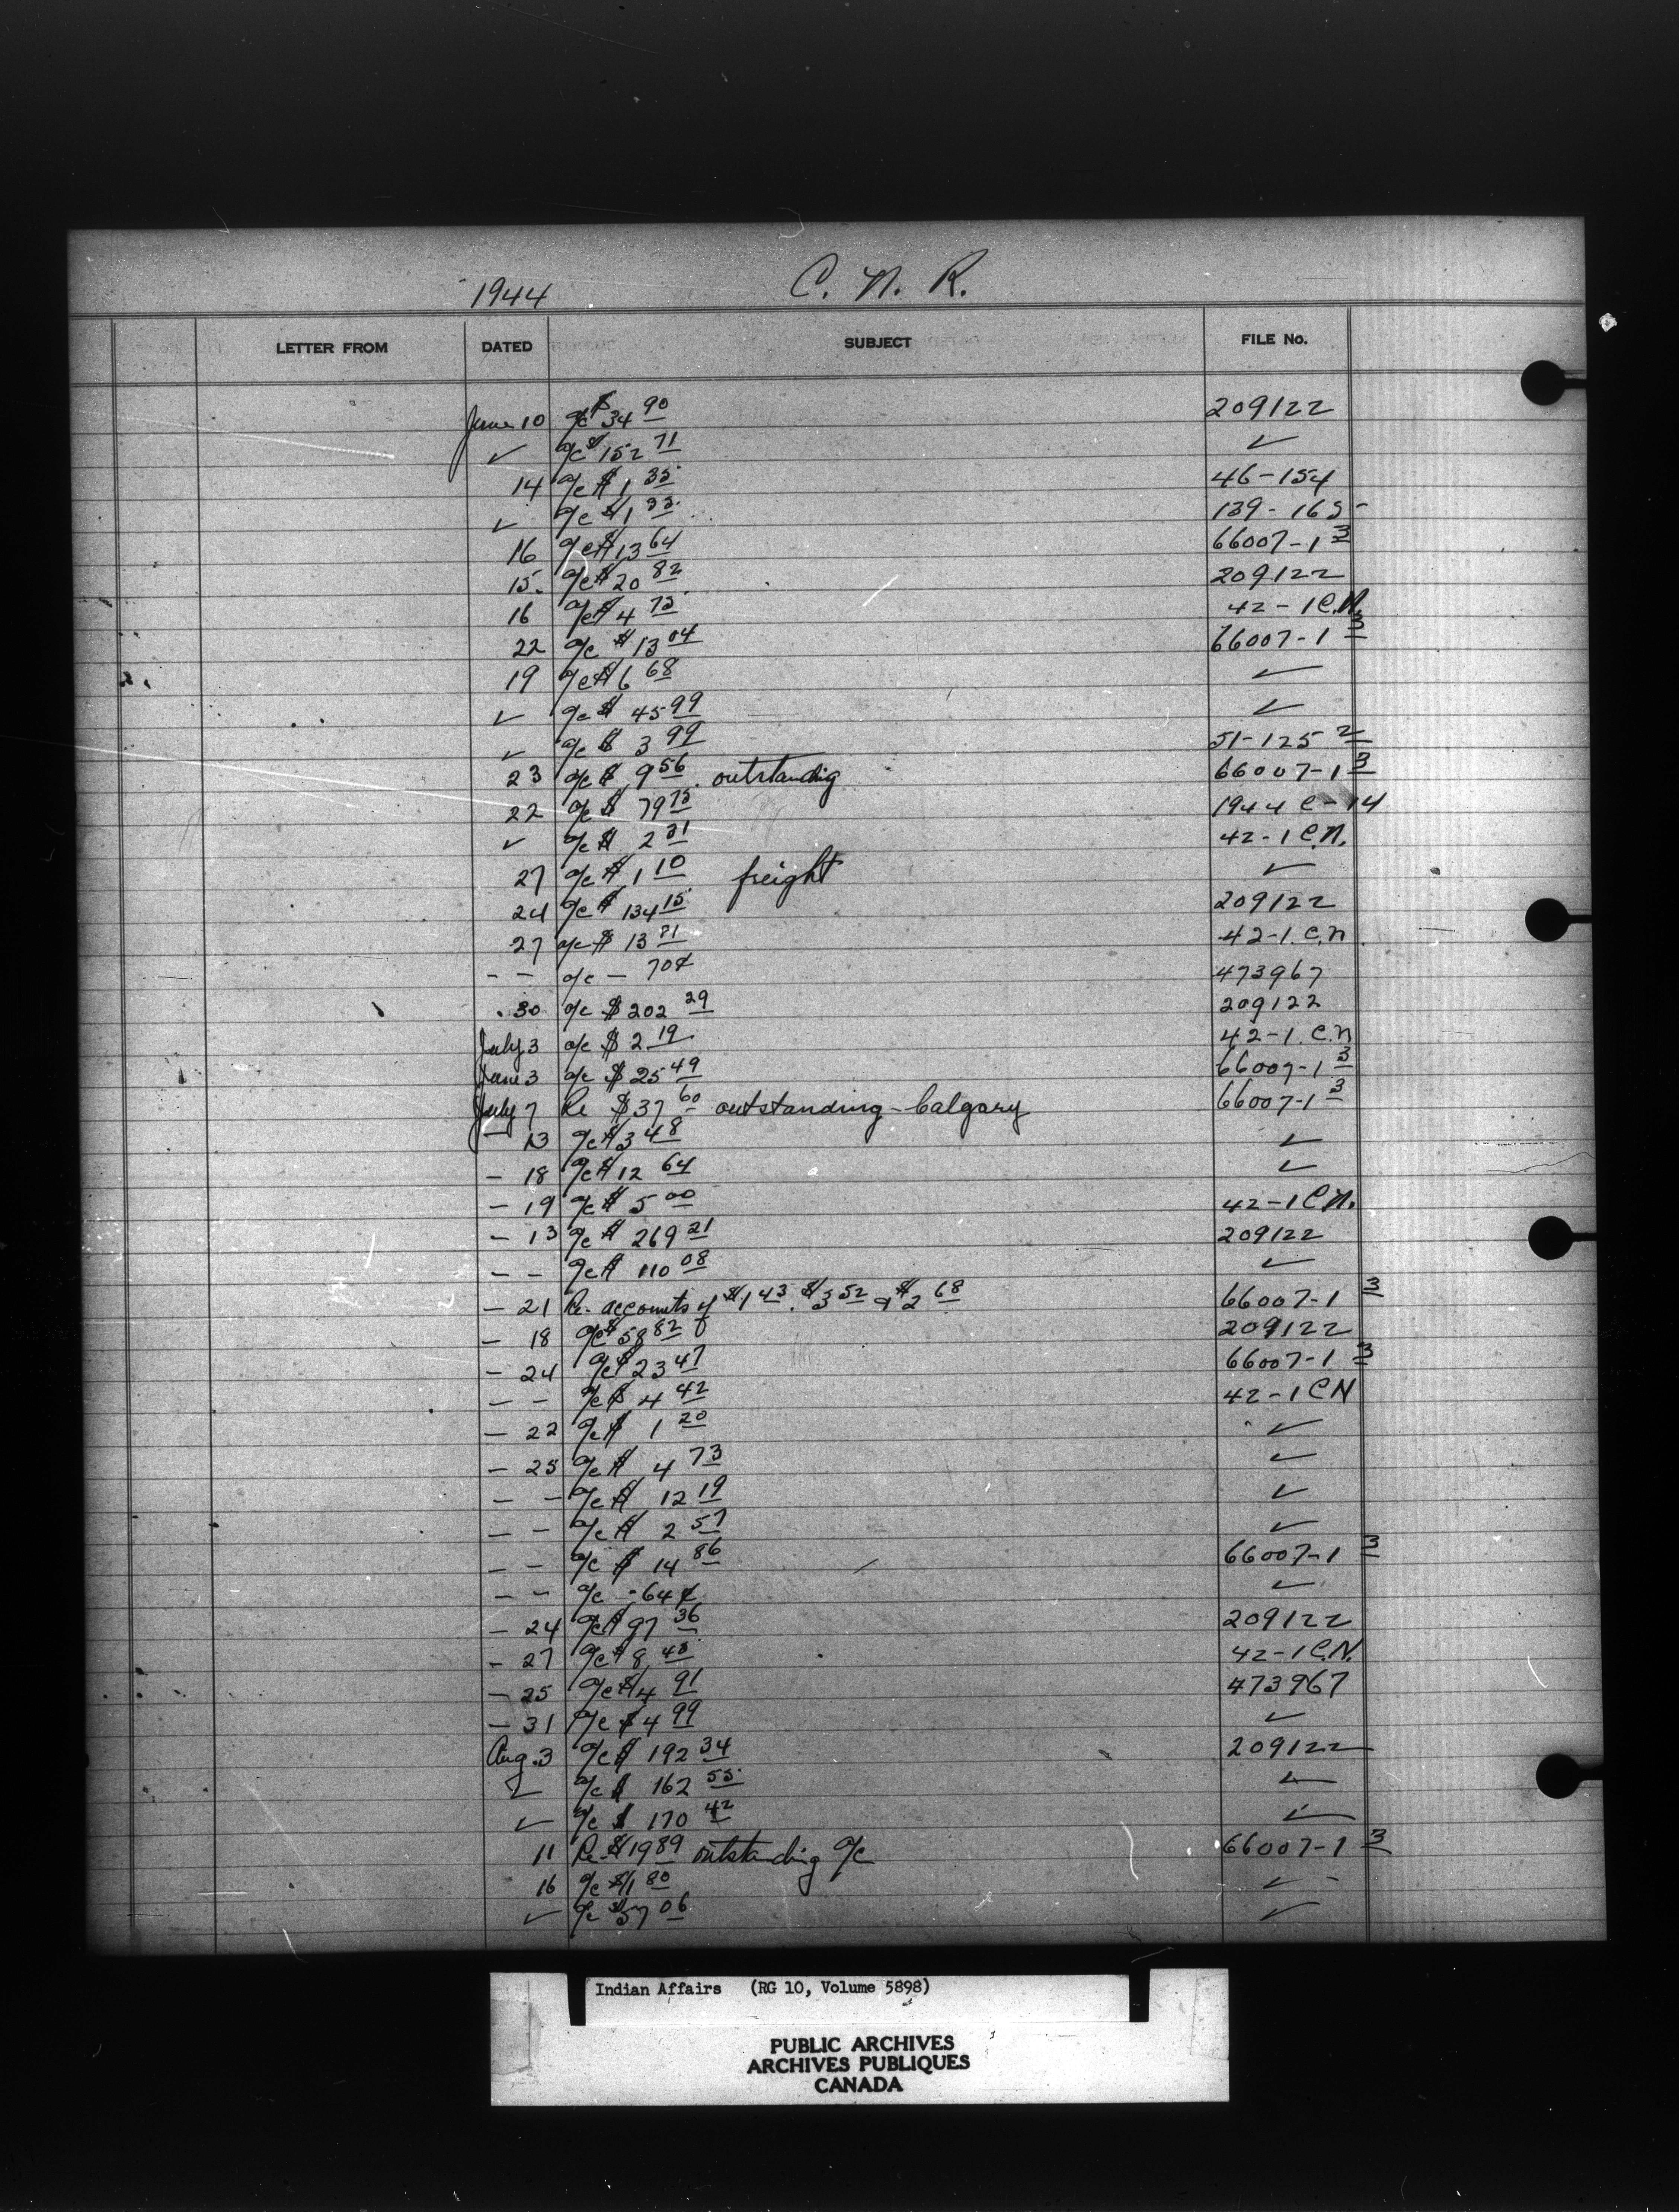 1944 C. N. R.
LETTER FROM DATED SUBJECT FILE No.
June 10 a/c $34 90 209122
✓ a/c $152 71 ✓
14 a/c $1 35 46-154
✓ a/c $1 35 139-165-
16 a/c $13 64 66007-1 3
15 a/c $20 82 209122
16 a/c $4 75 42-1 C.N.
22 a/c $13 04 66007-1 3
19 a/c $6 68 ✓
✓ a/c $45 99 ✓
✓ a/c $3 99 51-125 2
23 a/c $9 56 outstanding 66007-1 3
22 a/c $79 75 1944 C-14
✓ a/c $2 31 42-1 C.N.
27 a/c $1 10 freight ✓
24 a/c $134 15 209122
27 a/c $13 81 42-1. C.N
- - a/c - 70¢ 473967
30 a/c $202 29 209122
July 3 a/c $2 19 42-1. C.N
June 3 a/c $25 49 66007-1 3
July 7 Re $37 60 outstanding - Calgary 66007-1 3
- 13 a/c $3 48 ✓
- 18 a/c $12 64 ✓
- 19 a/c $5 00 42-1 C.N.
- 13 a/c $269 21 209122
- - a/c $110 08 ✓
- 21 Re. accounts of $1 43. $3 52 & $2 68 66007-1 3
- 18 a/c $58 82 209122
- 24 a/c $23 47 66007-1 3
- - a/c $4 42 42-1 CN
- 22 a/c $1 20 ✓
- 25 a/c $4 73 ✓
- - a/c $12 19 ✓
- - a/c $2 57 ✓
- - a/c $14 86 66007-1 3
- - a/c - 64¢ ✓
- 24 a/c $97 36 209122
- 27 a/c $8 45 42-1 C.N.
- 25 a/c $4 91 473967
- 31 a/c $4 99 ✓
Aug. 3 a/c $192 34 209122
✓ a/c $162 55 ✓
✓ a/c $170 42 ✓
11 Re $19 89 outstanding a/c 66007-1 3
16 a/c $1 80 ✓
✓ a/c $37 06 ✓
Indian Affairs (RG 10, Volume 5898)
PUBLIC ARCHIVES
ARCHIVES PUBLIQUES
CANADA